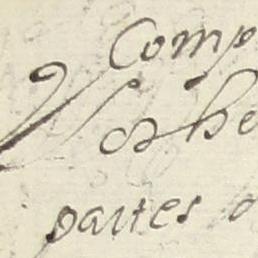 Comp
Vos he
partes o